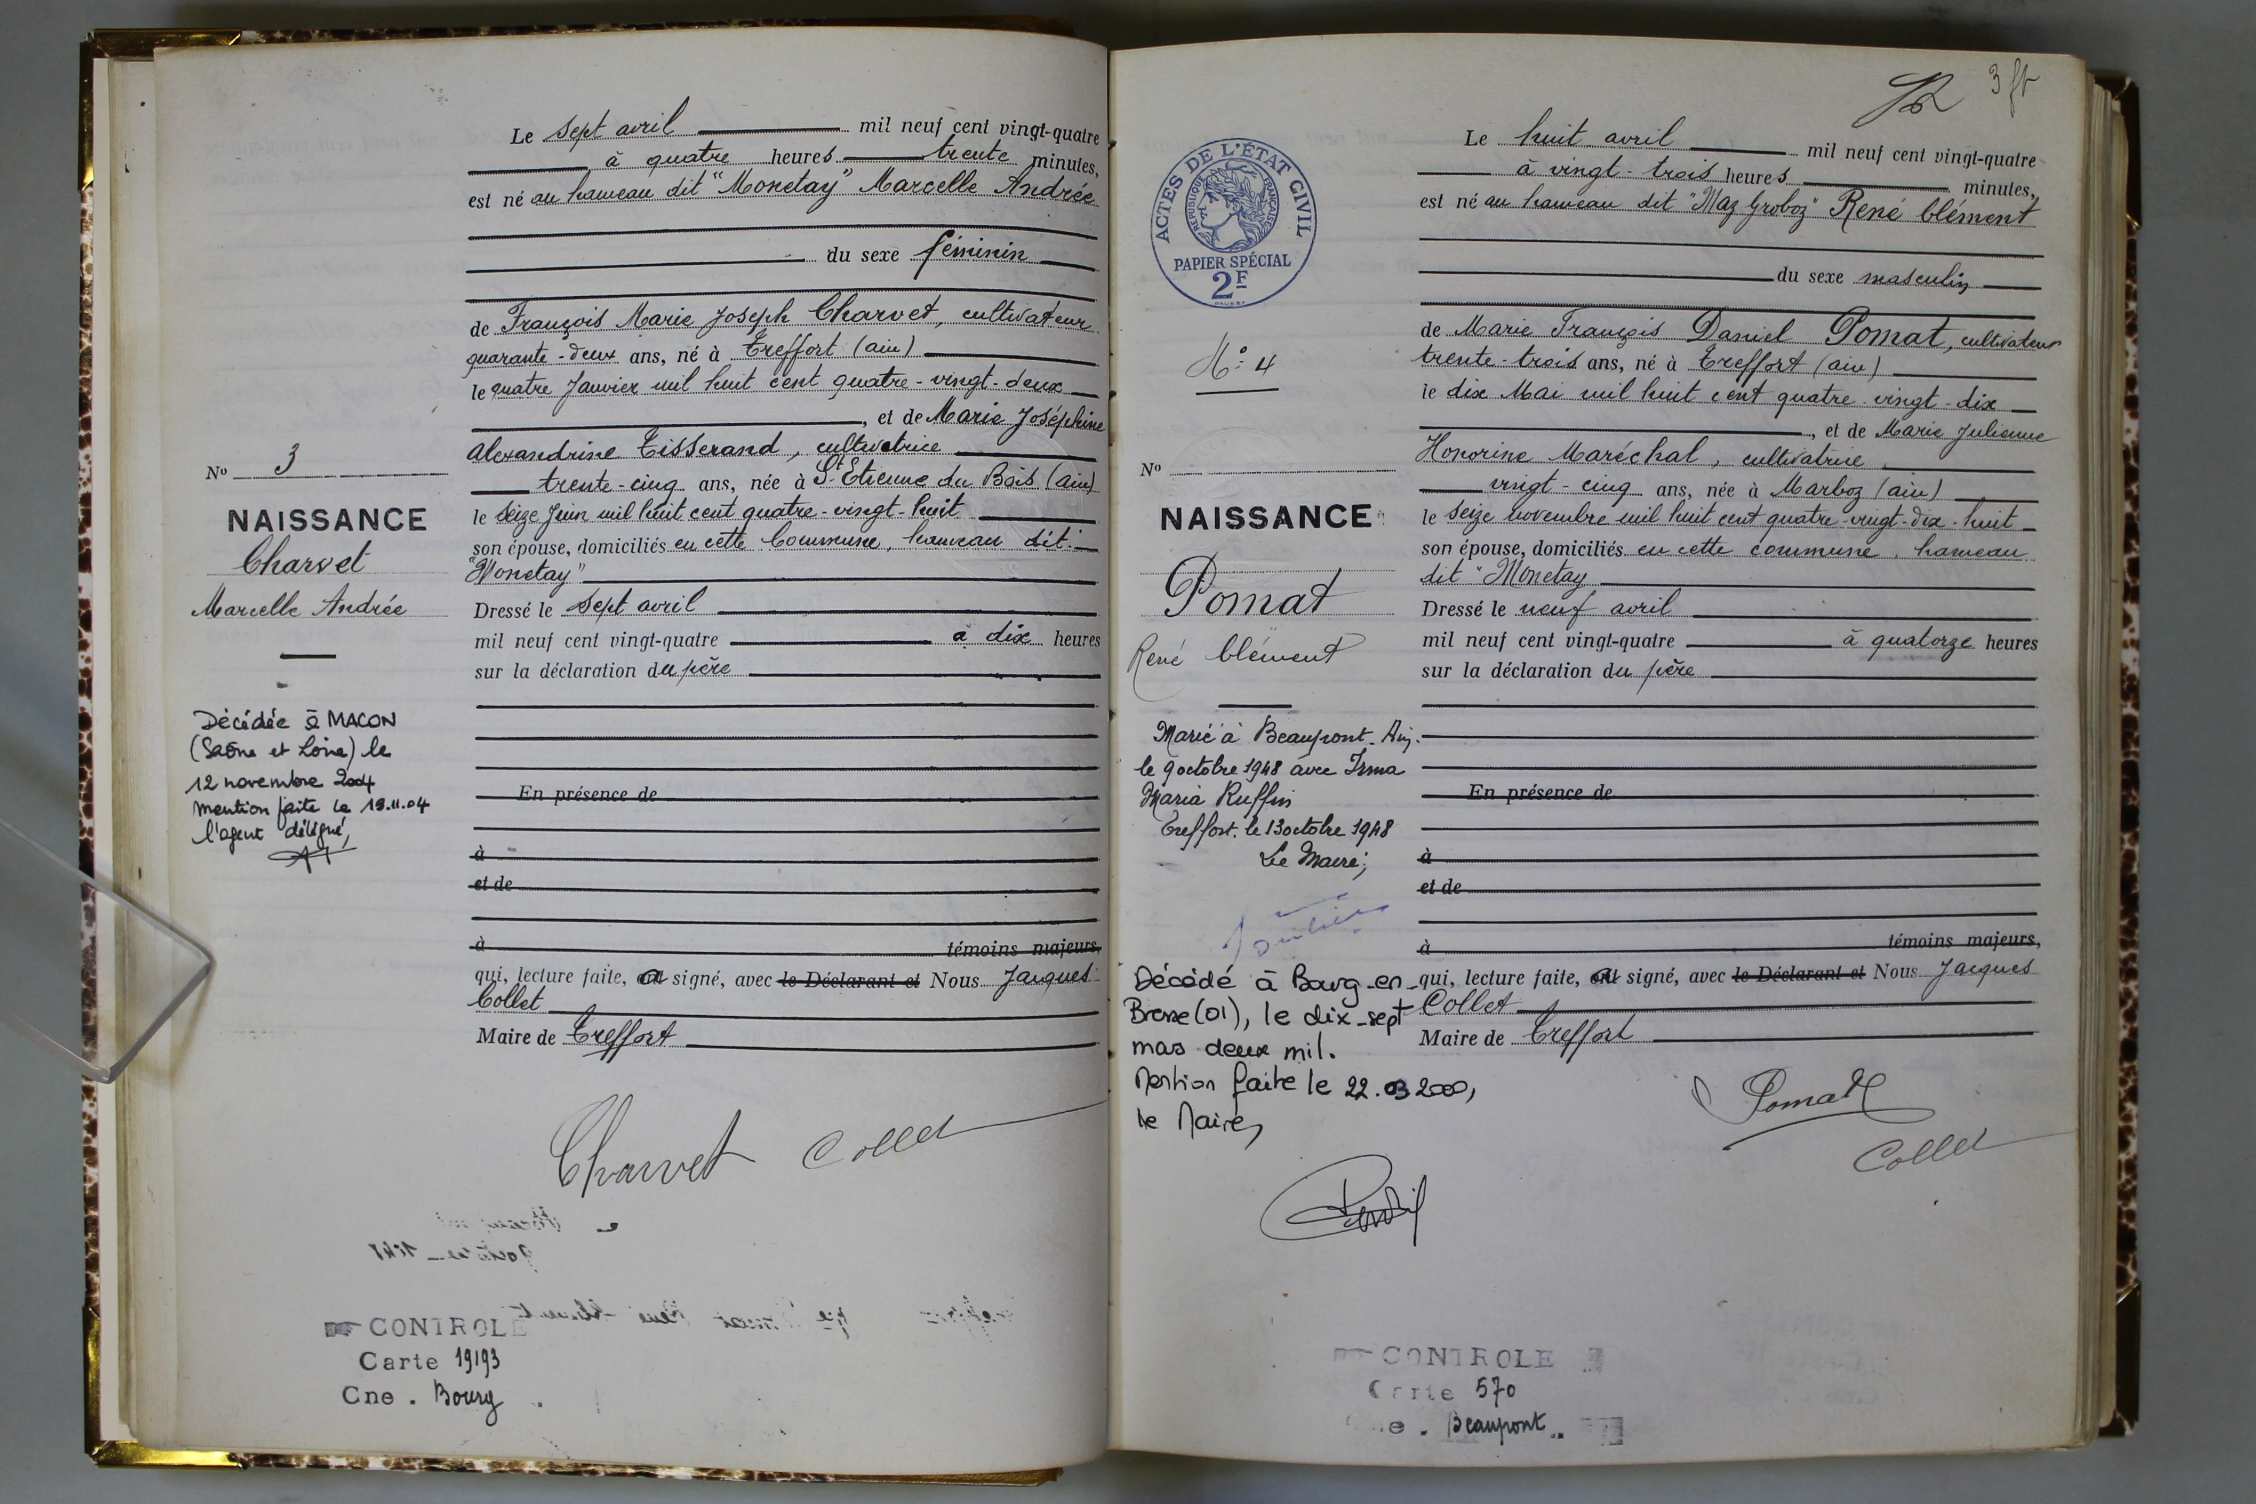 Le sept avril mil neuf cent vingt-quatre
à quatre heures trente minutes,
est né au hameau dit "Monetay" Marcelle Andrée
du sexe féminin
de François Marie Joseph Charvet, cultivateur
quarante-deux ans, né à Treffort (ain)
le quatre Janvier mil huit cent quatre-vingt-deux
, et de Marie Joséphine
Alexandrine Tisserand, cultivatrice
trente-cinq ans, née à St Etienne du Bois (ain)
le seize Juin mil huit cent quatre-vingt-huit
son épouse, domiciliés en cette Commune, hameau dit
"Monetay"
Dressé le sept avril
mil neuf cent vingt-quatre à dix heures
sur la déclaration du père
En présence de
à
et de
à témoins majeurs,
qui, lecture faite, a signé, avec le Déclarant et Nous Jacques
Collet
Maire de Treffort
Charvet Collet
No 3
NAISSANCE
Charvet
Marcelle Andrée
Décédée à MACON
(Saône et Loire) le
12 novembre 2004
Mention faite le 19.11.04
l'agent délégué,
CONTROLE
Carte 19193
Cne. Bourg
3
Le huit avril mil neuf cent vingt-quatre
à vingt-trois heures minutes,
est né au hameau dit "Maz Groboz" René Clément
du sexe masculin
de Marie François Daniel Pomat, cultivateur
trente-trois ans, né à Treffort (ain)
le dix Mai mil huit cent quatre-vingt-dix
, et de Marie Julienne
Honorine Maréchal, cultivatrice
vingt-cinq ans, née à Marboz (ain)
le seize novembre mil huit cent quatre-vingt-dix-huit
son épouse, domiciliés en cette commune, hameau
dit "Monetay
Dressé le neuf avril
mil neuf cent vingt-quatre à quatorze heures
sur la déclaration du père
En présence de
à
et de
à témoins majeurs,
qui, lecture faite, a signé, avec le Déclarant et Nous Jacques
Collet
Maire de Treffort
Pomat
Collet
ACTES DE L'ÉTAT CIVIL
RÉPUBLIQUE FRANÇAISE
PAPIER SPÉCIAL
2F
No 4
No
NAISSANCE
Pomat
René Clément
Marié à Beaupont - Ain.
le 9 octobre 1948 avec Irma
Maria Ruffin
Treffort. le 13 octobre 1948
Le Maire;
Décédé à Bourg-en-
Bresse (01), le dix-sept
mars deux mil.
Mention faite le 22.03 2000,
le Maire,
CONTROLE
Carte 570
Cne. Beaupont